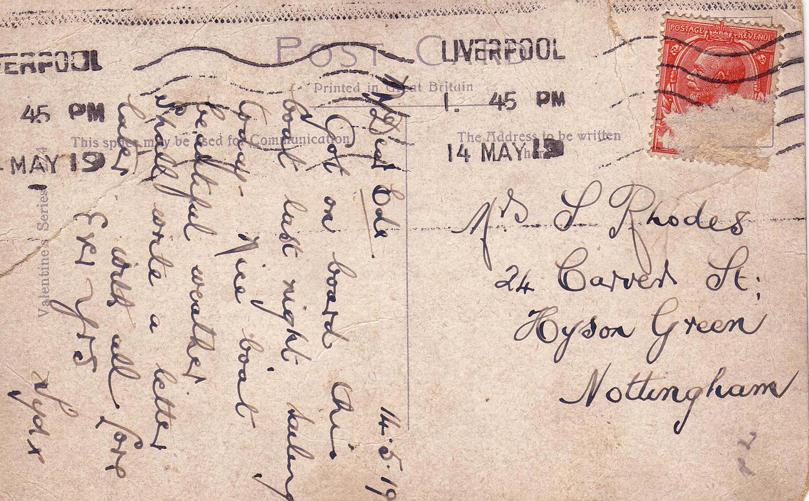 POST CARD
Printed in Great Britain
This space may be used for Communication
The Address to be written
Valentine's Series
LIVERPOOL
1. 45 PM
14 MAY 19
VERPOOL
45 PM
MAY 19
POSTAGE REVENUE
14.5.19
My Dear Ede
Got on board this
boat last night sailing
today. Nice boat
beautiful weather
shall write a letter
later
with all love
Ever Yrs
Syd x
Mrs S Rhodes
24 Carver St;
Hyson Green
Nottingham